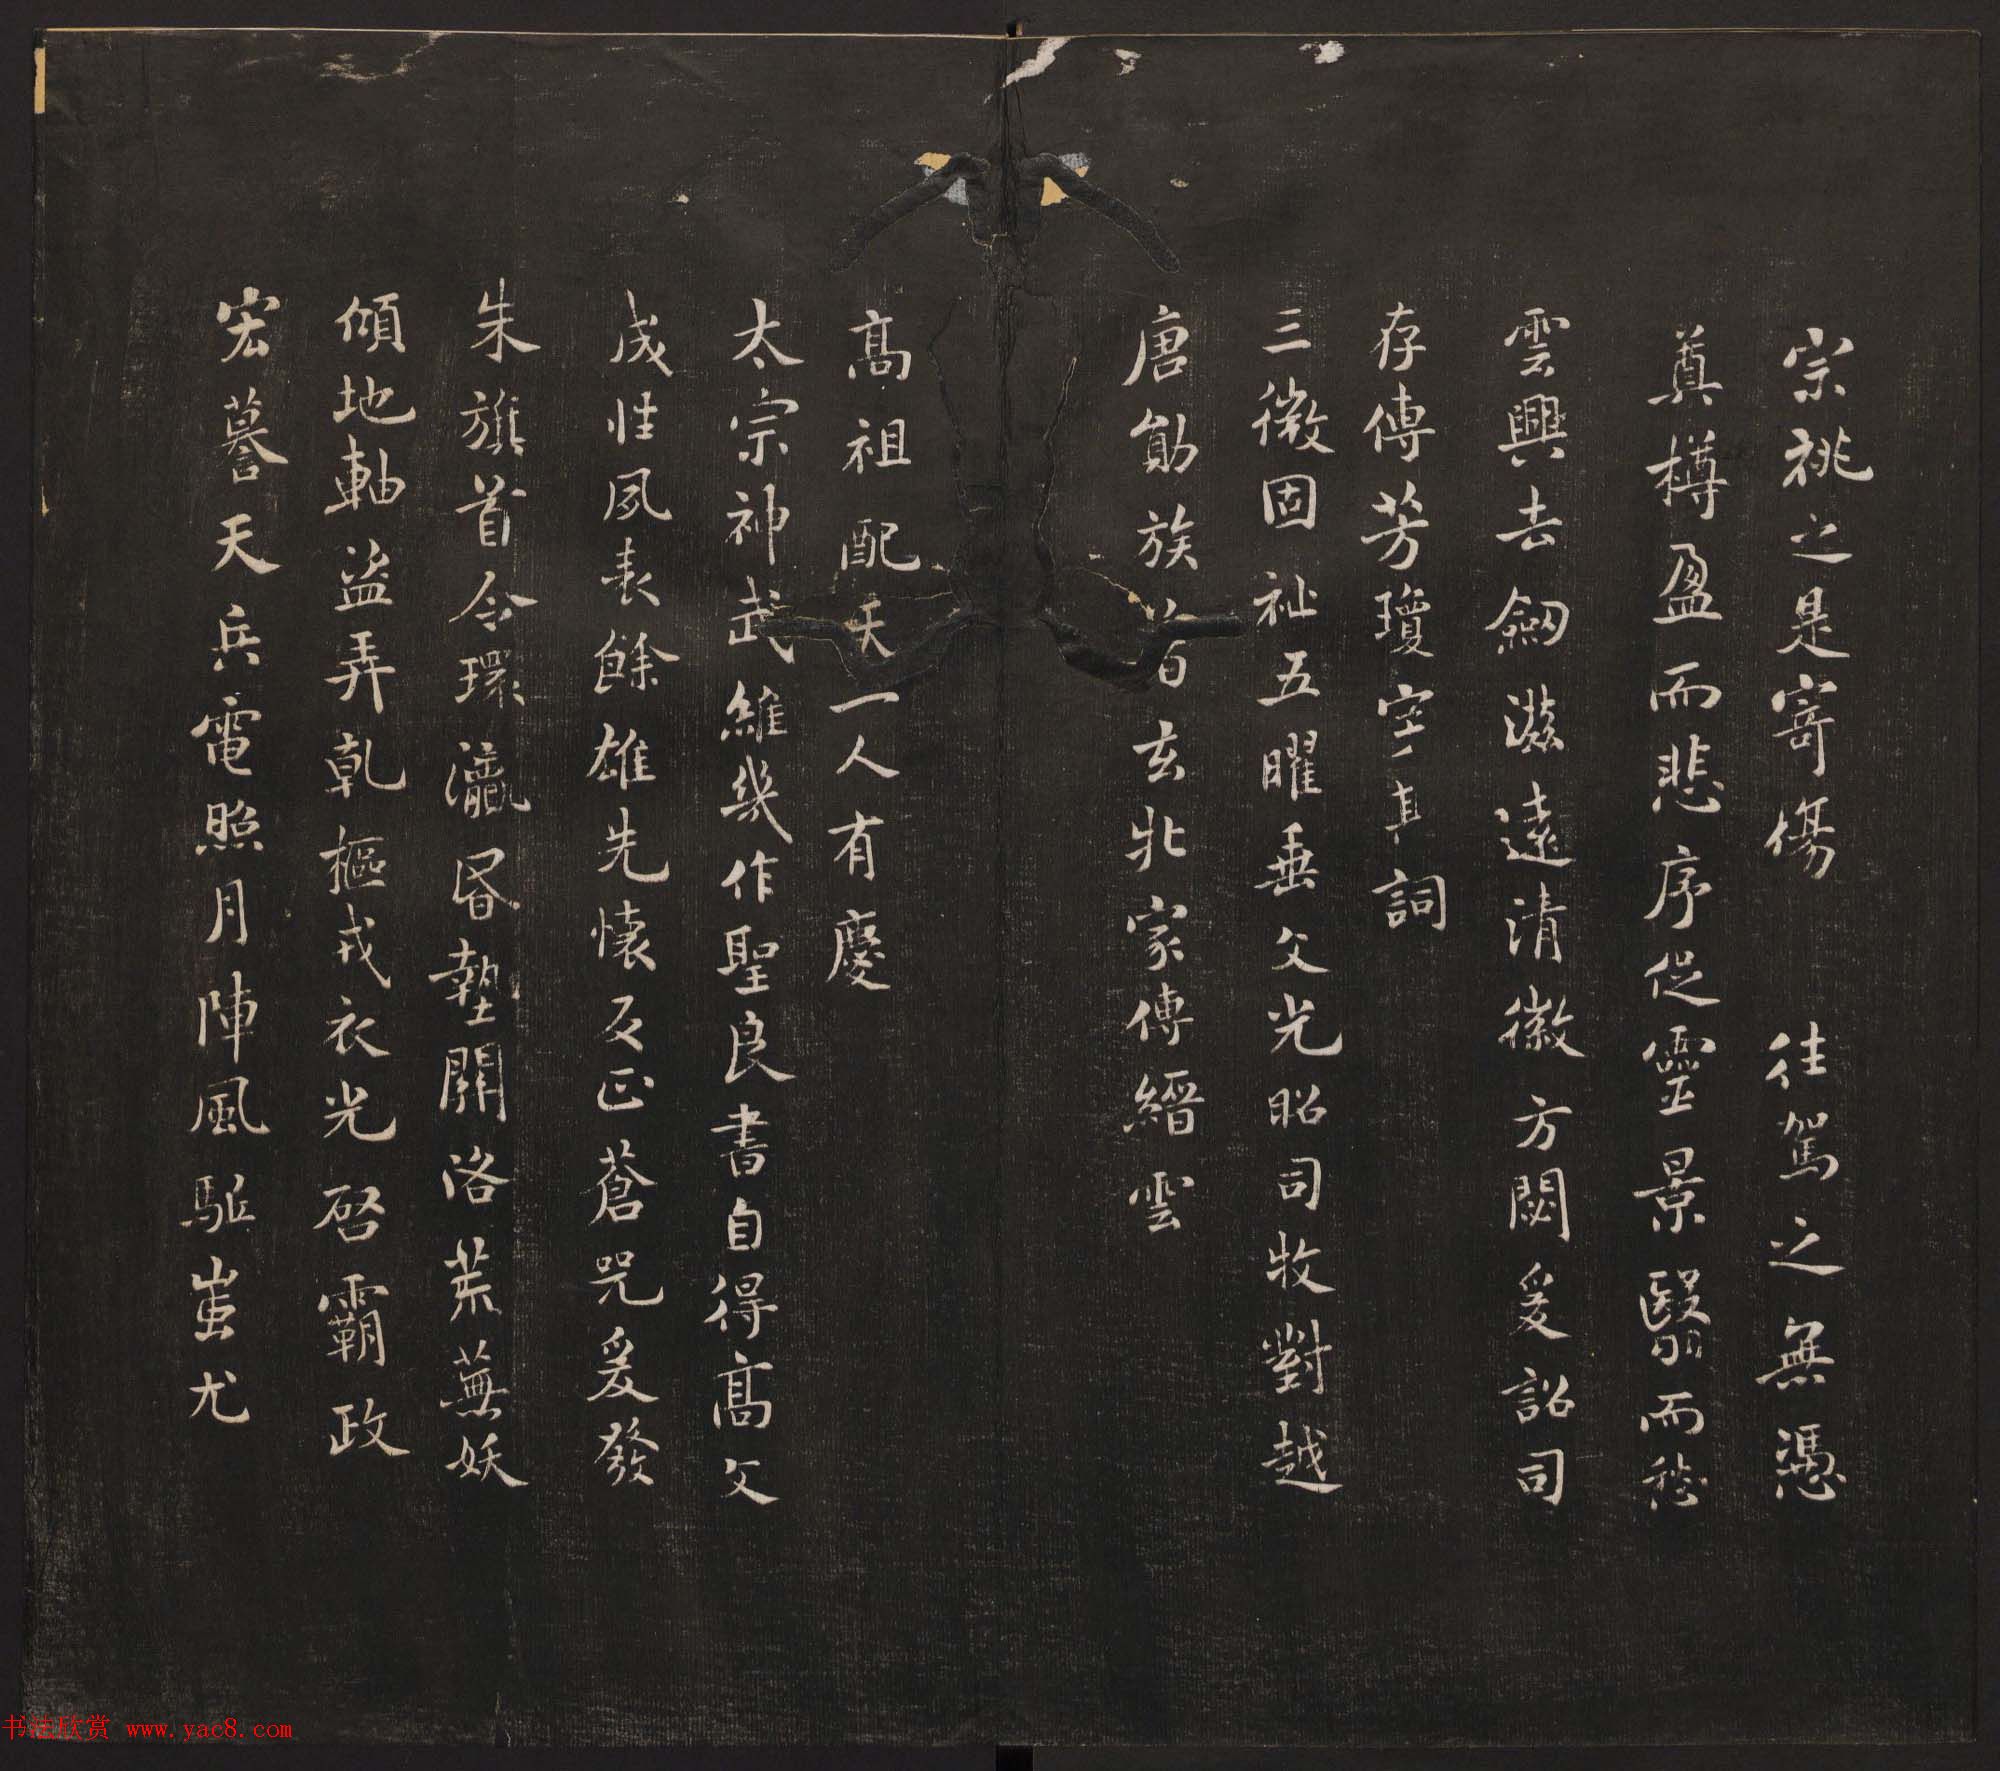 宗祧之是寄傷 往駕之無憑
奠樽盈而悲序促靈景翳而愁
雲興去劒滋遠清徽方閟爰詔司
存傳芳瓊空 詞
三徵固祉五曜垂文光昭司牧對越
唐勛族 玄北家傳縉雲
高祖配天一人有慶
太宗神武維幾作聖良書自得高文
成性夙表餘雄先懷反正蒼兕爰發
朱旗首令環瀛昏墊關洛荒蕪妖
傾地軸盜弄乾樞戎衣光啓霸政
宏謩天兵電照月陣風驅蚩尤
书法欣赏 www.yac8.com